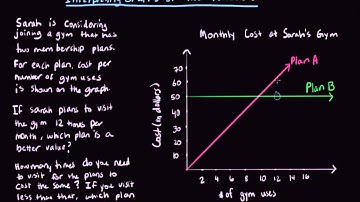 Sarah is considering
joining a gym that has
two membership plans.
For each plan, cost per
number of gym uses
is shown on the graph.
If sarah plans to visit
the gym 12 times per
month, which plan is a
better value?
How many times do you need
to visit for the plans to
cost the same? If you visit
less than that, which plan
Monthly Cost at Sarah's Gym
Plan A
Plan B
Cost (in dollars)
70
60
50
40
30
20
10
2 4 6 8 10 12 14 16
# of gym uses